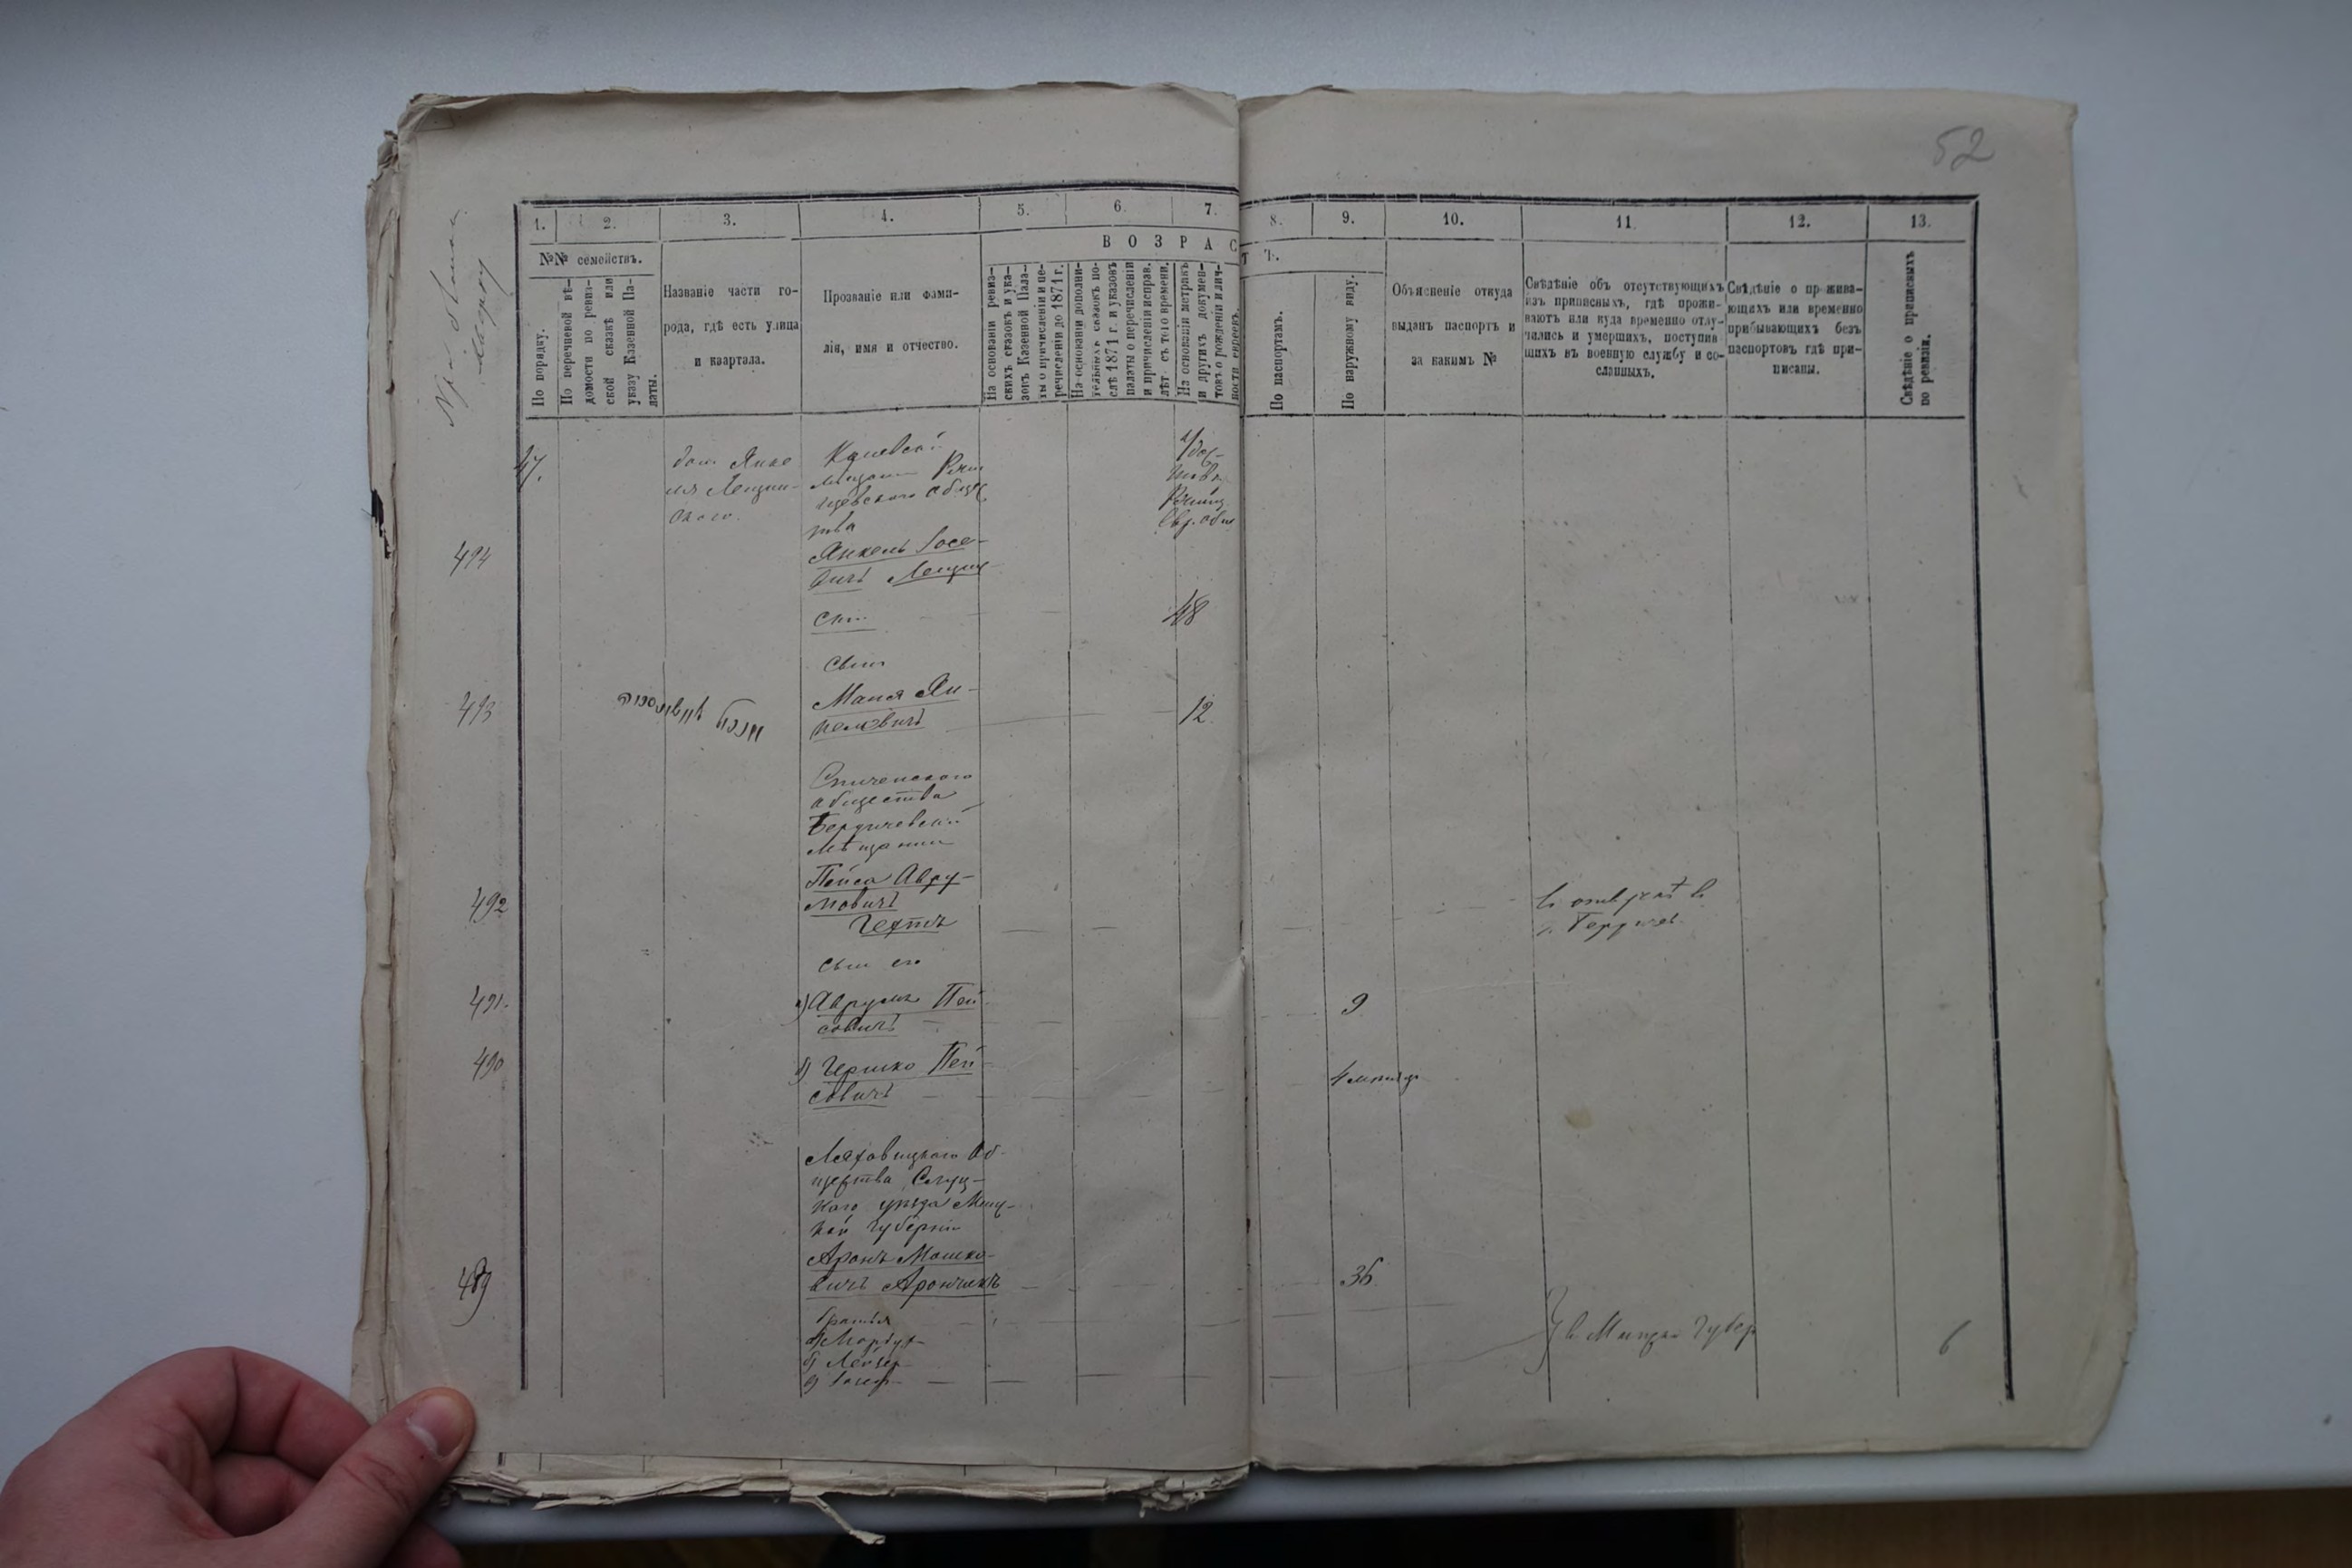 52
1. 2. 3. 4. 5. 6. 7. 8. 9. 10. 11. 12. 13.
№№ семействъ.
По порядку.
По перечневой вѣ-
домости по ревиз-
ской сказкѣ или
указу Казенной Па-
латы.
Названіе части го-
рода, гдѣ есть улица
и квартала.
Прозваніе или фами-
лія, имя и отчество.
ВОЗРАСТЪ.
На основаніи ревиз-
скихъ сказокъ и ука-
зовъ Казенной Пала-
ты о причисленіи и пе-
речисленіи до 1871 г.
На основаніи дополни-
тельныхъ сказокъ по-
слѣ 1871 г. и указовъ
палаты о перечисленіи
и причисленіи исправ.
лѣт. съ того времени.
На основаніи метрикъ
и другихъ докумен-
товъ о рожденіи и лич-
ности евреевъ.
По паспортамъ.
По наружному виду.
Объясненіе откуда
выданъ паспортъ и
за какимъ №
Свѣдѣніе объ отсутствующихъ
изъ приписныхъ, гдѣ прожи-
ваютъ или куда временно отлу-
чались и умершихъ, поступив
шихъ въ военную службу и со-
сланныхъ.
Свѣдѣніе о прожива-
ющихъ или временно
прибывающихъ безъ
паспортовъ гдѣ при-
писаны.
Свѣдѣніе о приписныхъ
по ревизіи.
47.
дом Янке
ля Лещин-
скаго.
Кіевскій
мѣщанин
общес
тва
494
Янкель Іосе-
вичъ Лещин
скій
48
сын
493
Маня Ян-
келевичъ
12
Спиченского
общества
Бердичевскій
мѣщанин
492
Пейса Авру-
мовичъ
Гехтъ
в
г. Бердичев
сын его
491.
а) Аврумъ Пей
совичъ
9
490
б) Гершко Пей
совичъ
4 мѣсяца
Ляховицкого об-
щества Слуц-
кого уѣзда Минс-
кой губерніи
489
Аронъ Мошко-
вичъ Арончикъ
36
братья
а) Мордух
б) Лейзер
в) Іосеф
в Минской губер
6